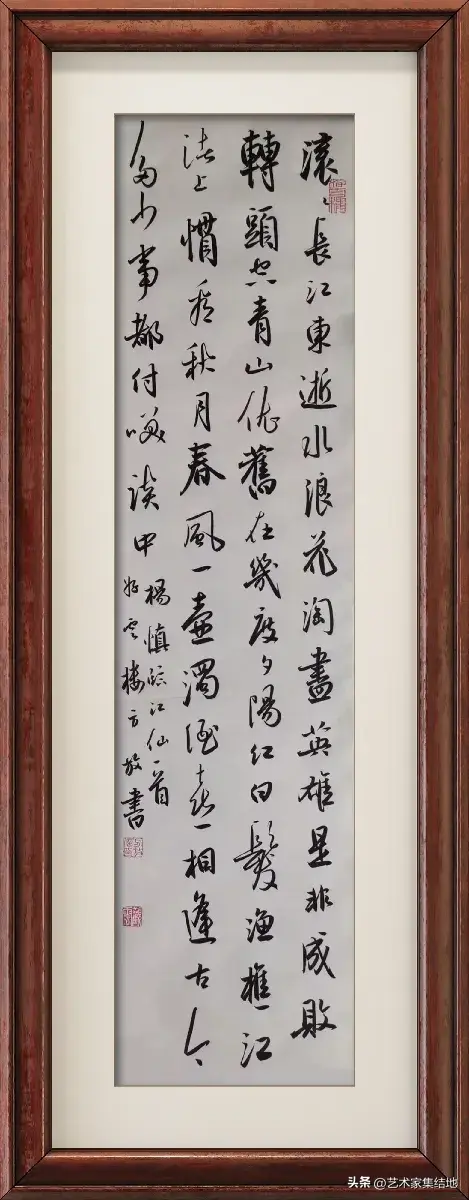 滚〻長江東逝水浪花淘盡英雄是非成敗
轉頭空青山依舊在幾度夕陽紅白髮漁樵江
渚上慣看秋月春風一壺濁酒喜相逢古今
多少事都付笑談中
楊慎臨江仙一首
雲樓方放書
头条 @艺术家集结地